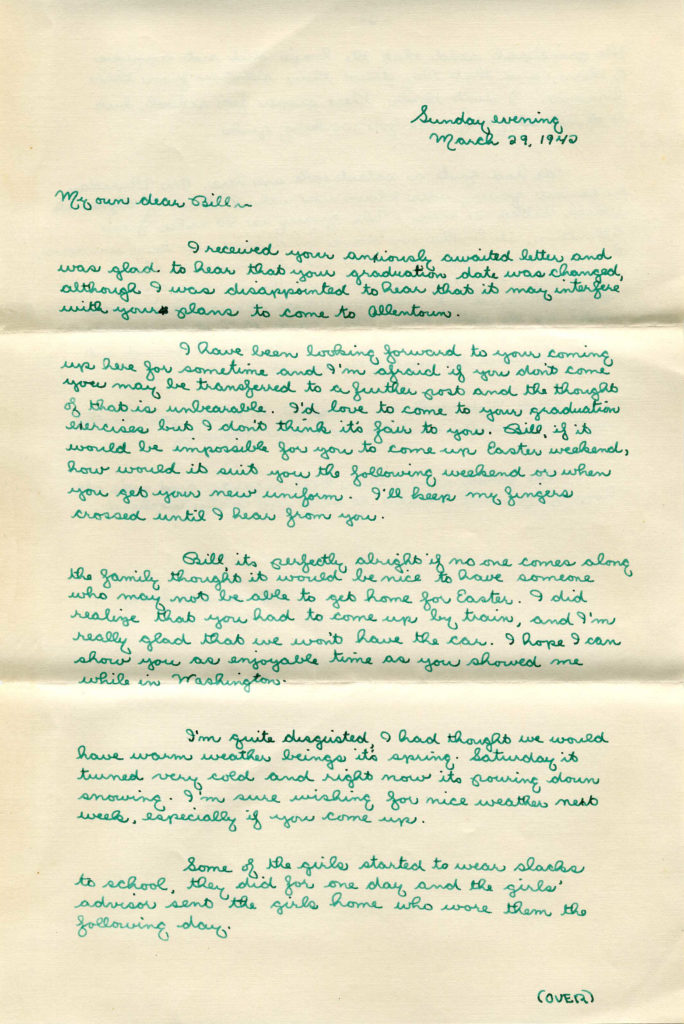 Sunday evening
March 29, 1942
My own dear Bill~
I received your anxiously awaited letter and
was glad to hear that your graduation date was changed,
although I was disappointed to hear that it may interfere
with your plans to come to Allentown.
I have been looking forward to your coming
up here for sometime and I'm afraid if you don't come
you may be transferred to a further post and the thought
of that is unbearable. I'd love to come to your graduation
exercises but I don't think it's fair to you. Bill, if it
would be impossible for you to come up Easter weekend,
how would it suit you the following weekend or when
you get your new uniform. I'll keep my fingers
crossed until I hear from you.
Bill, its perfectly alright if no one comes along
the family thought it would be nice to have someone
who may not be able to get home for Easter. I did
realize that you had to come up by train, and I'm
really glad that we won't have the car. I hope I can
show you as enjoyable time as you showed me
while in Washington.
I'm quite disgusted, I had thought we would
have warm weather beings it's spring. Saturday it
turned very cold and right now its pouring down
snowing. I'm sure wishing for nice weather next
week, especially if you come up.
Some of the girls started to wear slacks
to school, they did for one day and the girls'
advisor sent the girls home who wore them the
following day.
(OVER)